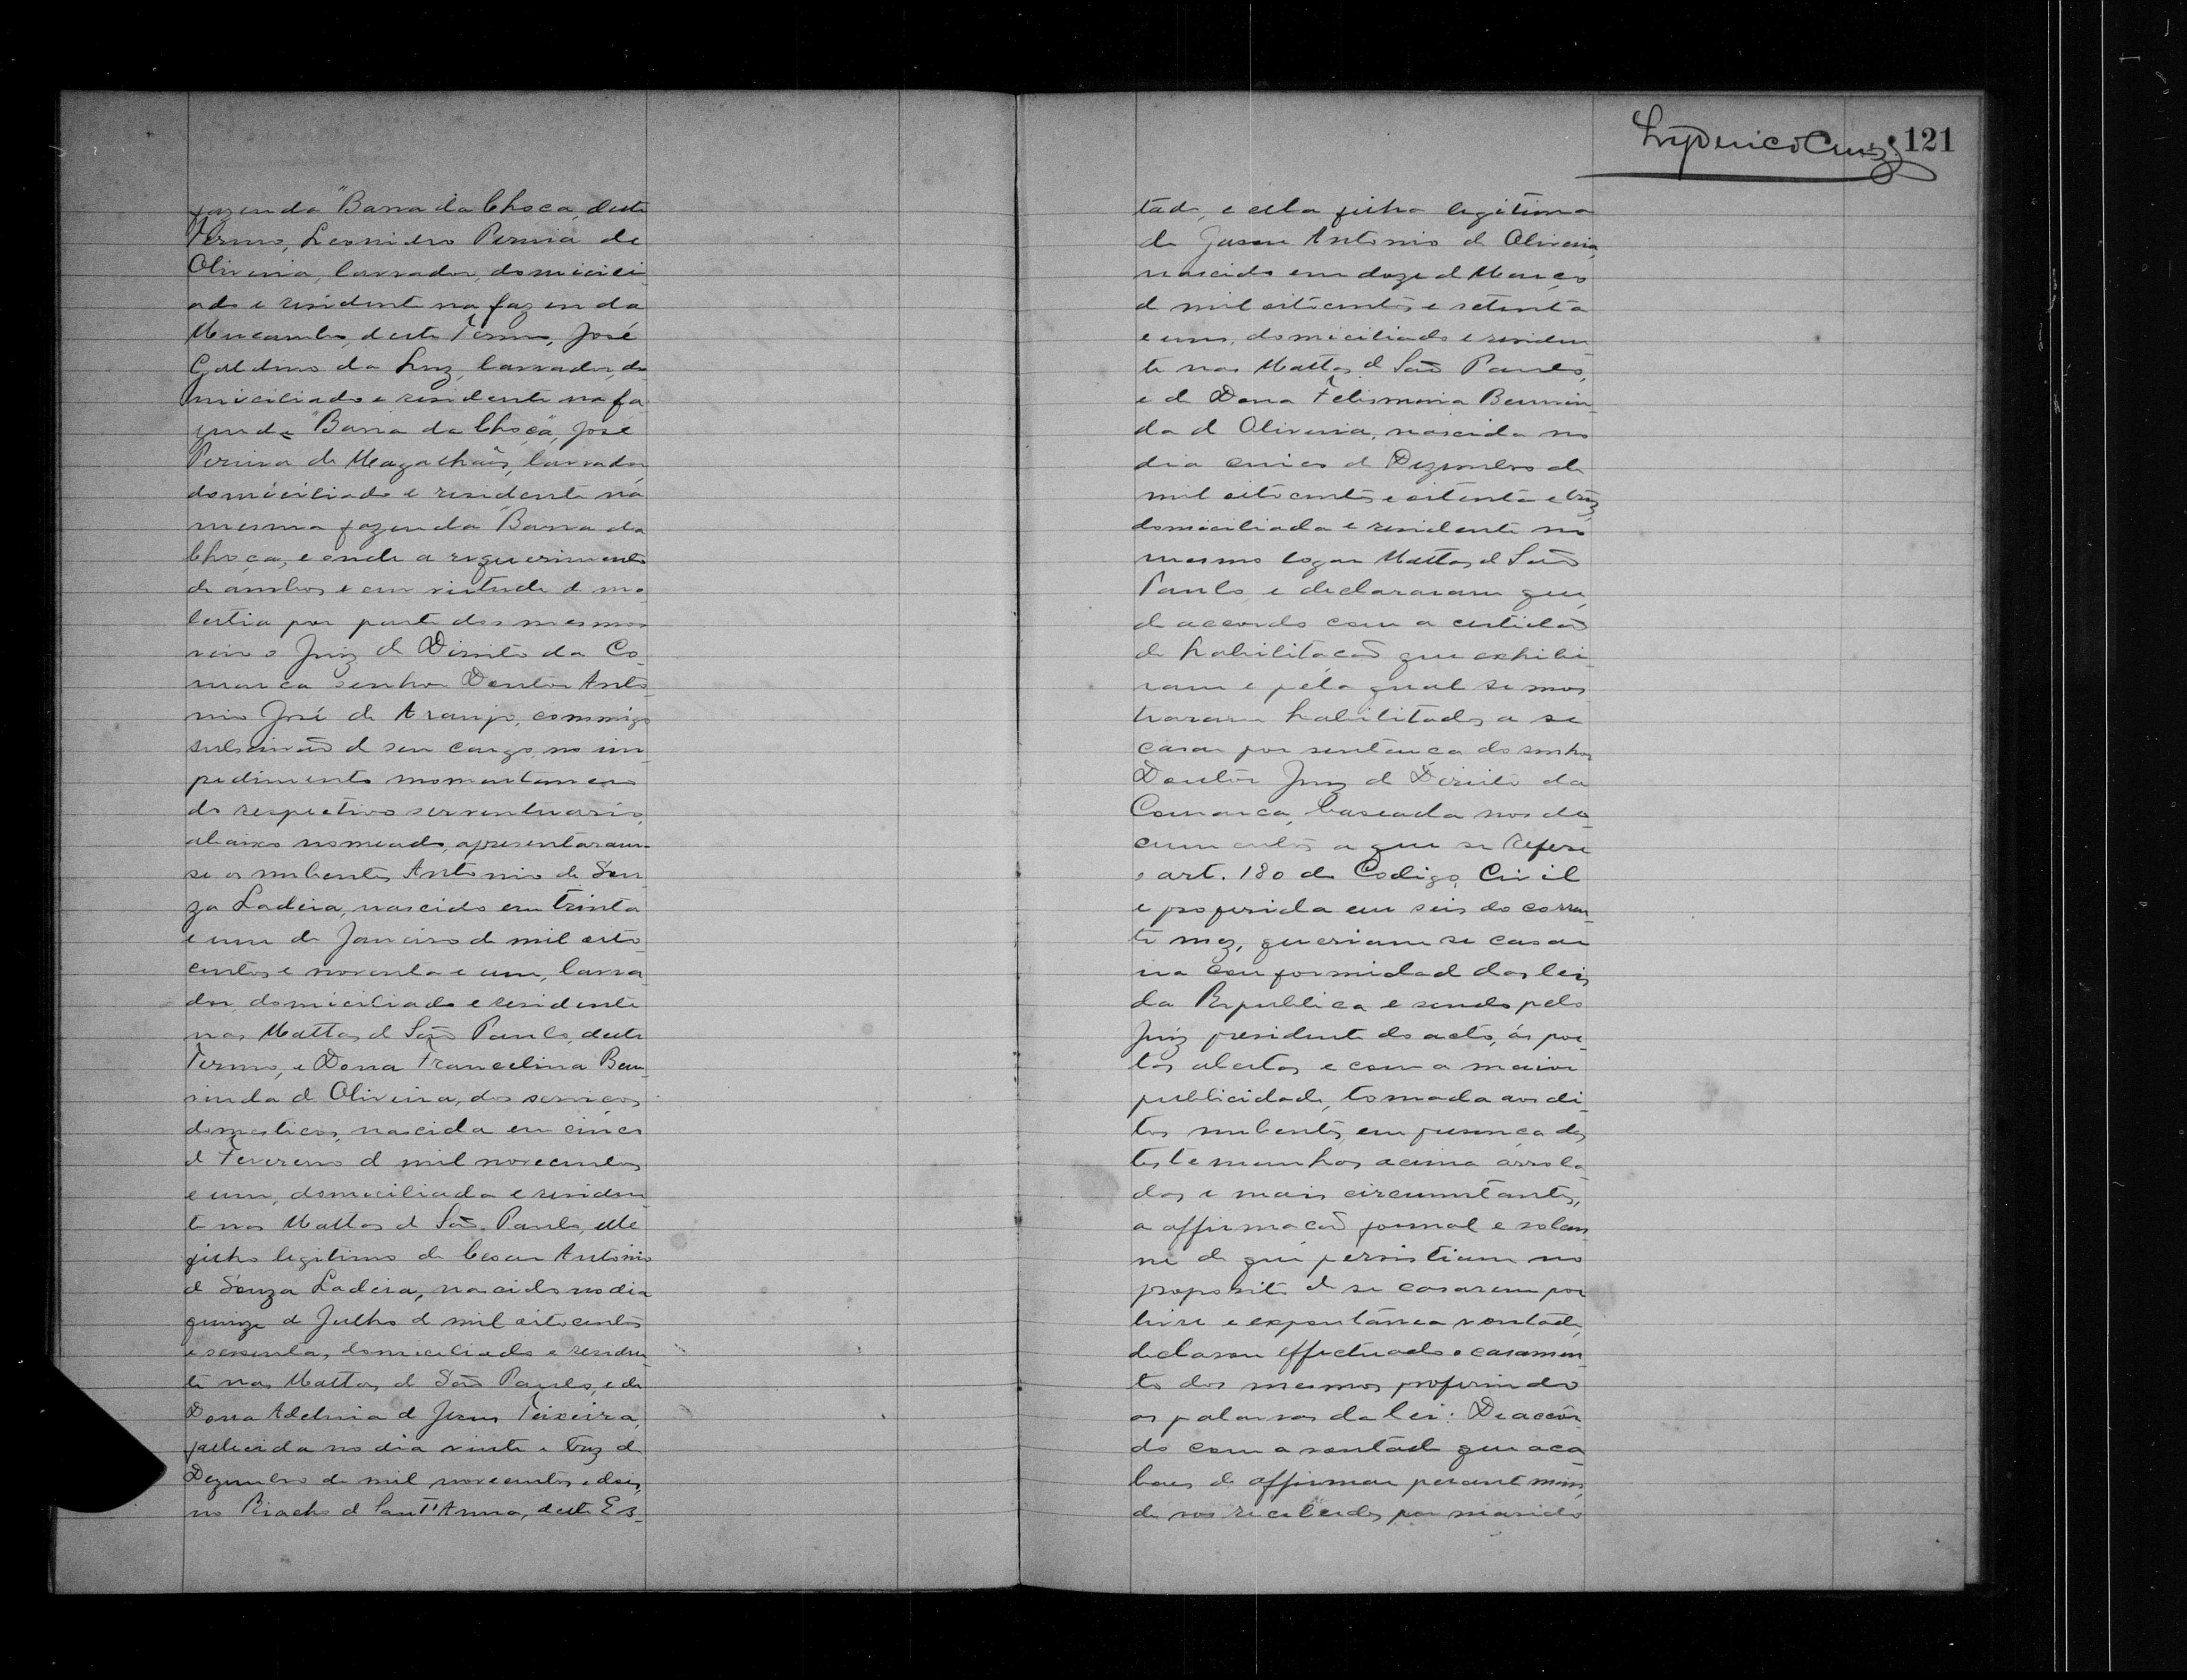 fazenda "Barra da Choca, deste
Termo, Leonidro Pereira de
Oliveira, lavrador, domicili
ado e residente na fazenda
Mucambo, deste Termo, José
Galdino da Luz, lavrador, do
miciliado e residente na fa
zenda "Barra da Choça", José
Pereira de Magalhães, lavrador
domiciliado e residente na
mesma fazenda "Barra da
Choça, e onde a requerimento
de ambos e em virtude de mo
lestia por parte dos mesmos
veio o Juiz de Direito da Co-
marca senhor Doutor Anto
nio José de Araujo, commigo
escrivão de seu cargo, no im
pedimento momentaneo
do respectivo serventuario,
abaixo nomeado, apresentaram-
se os nubentes Antonio de Sou
za Ladeia, nascido em trinta
e um de Janeiro de mil oito
centos e noventa e um, lavra
dor, domiciliado e residente
nas Mattas de São Paulo, deste
Termo, e Dona Francelina Ber
sinda de Oliveira, dos serviços
domesticos, nascida em cinco
de Fevereiro de mil novecentos
e um, domiciliada e residen
te nas Mattas de São Paulo, elle
filho legitimo de Cesar Antonio
de Souza Ladeia, nascido no dia
quinze de Julho de mil oitocentos
e sessenta, domiciliado e residen
te nas Mattas de São Paulo, e de
Dona Adelina de Jesus Teixeira,
fallecida no dia vinte e trez de
Dezembro de mil novecentos e dois,
no Riacho de Sant'Anna, deste Es-
Lyderico Cruz 121
tado, e ella filha legitima
de Antonio de Oliveira,
nascido em doze de Março
de mil oitocentos e setenta
e um, domiciliado e residen
te nas Mattas de São Paulo,
e de Dona Felismina
da de Oliveira, nascida no
dia cinco de Dezembro de
mil oitocentos e oitenta e trez,
domiciliada e residente no
mesmo logar Mattas de São
Paulo, e declararam que,
de accordo com a certidão
de habilitação que exhibi
ram e pela qual se mos
traram habilitados a se
casar por sentença do senhor
Doutor Juiz de Direito da
Comarca, baseada nos do-
cumentos a que se refere
o art. 180 do Codigo Civil
e proferida em seis do corren-
te mez, queriam se casar
na conformidade das leis
da Republica e sendo pelo
Juiz presidente do acto, ás por-
tas abertas e com a maior
publicidade, tomada aos di-
tos nubentes, em presença das
testemunhas acima arrola
das e mais circumstantes,
a affirmação formal e solem
ne de que persistiam no
proposito de se casarem por
livre e expontânea vontade,
declarou effectuado o casamen-
to dos mesmos proferindo
as palavras da lei: De accor
do com a vontade que aca
baes de affirmar perante mim,
de vos receberdes por marido